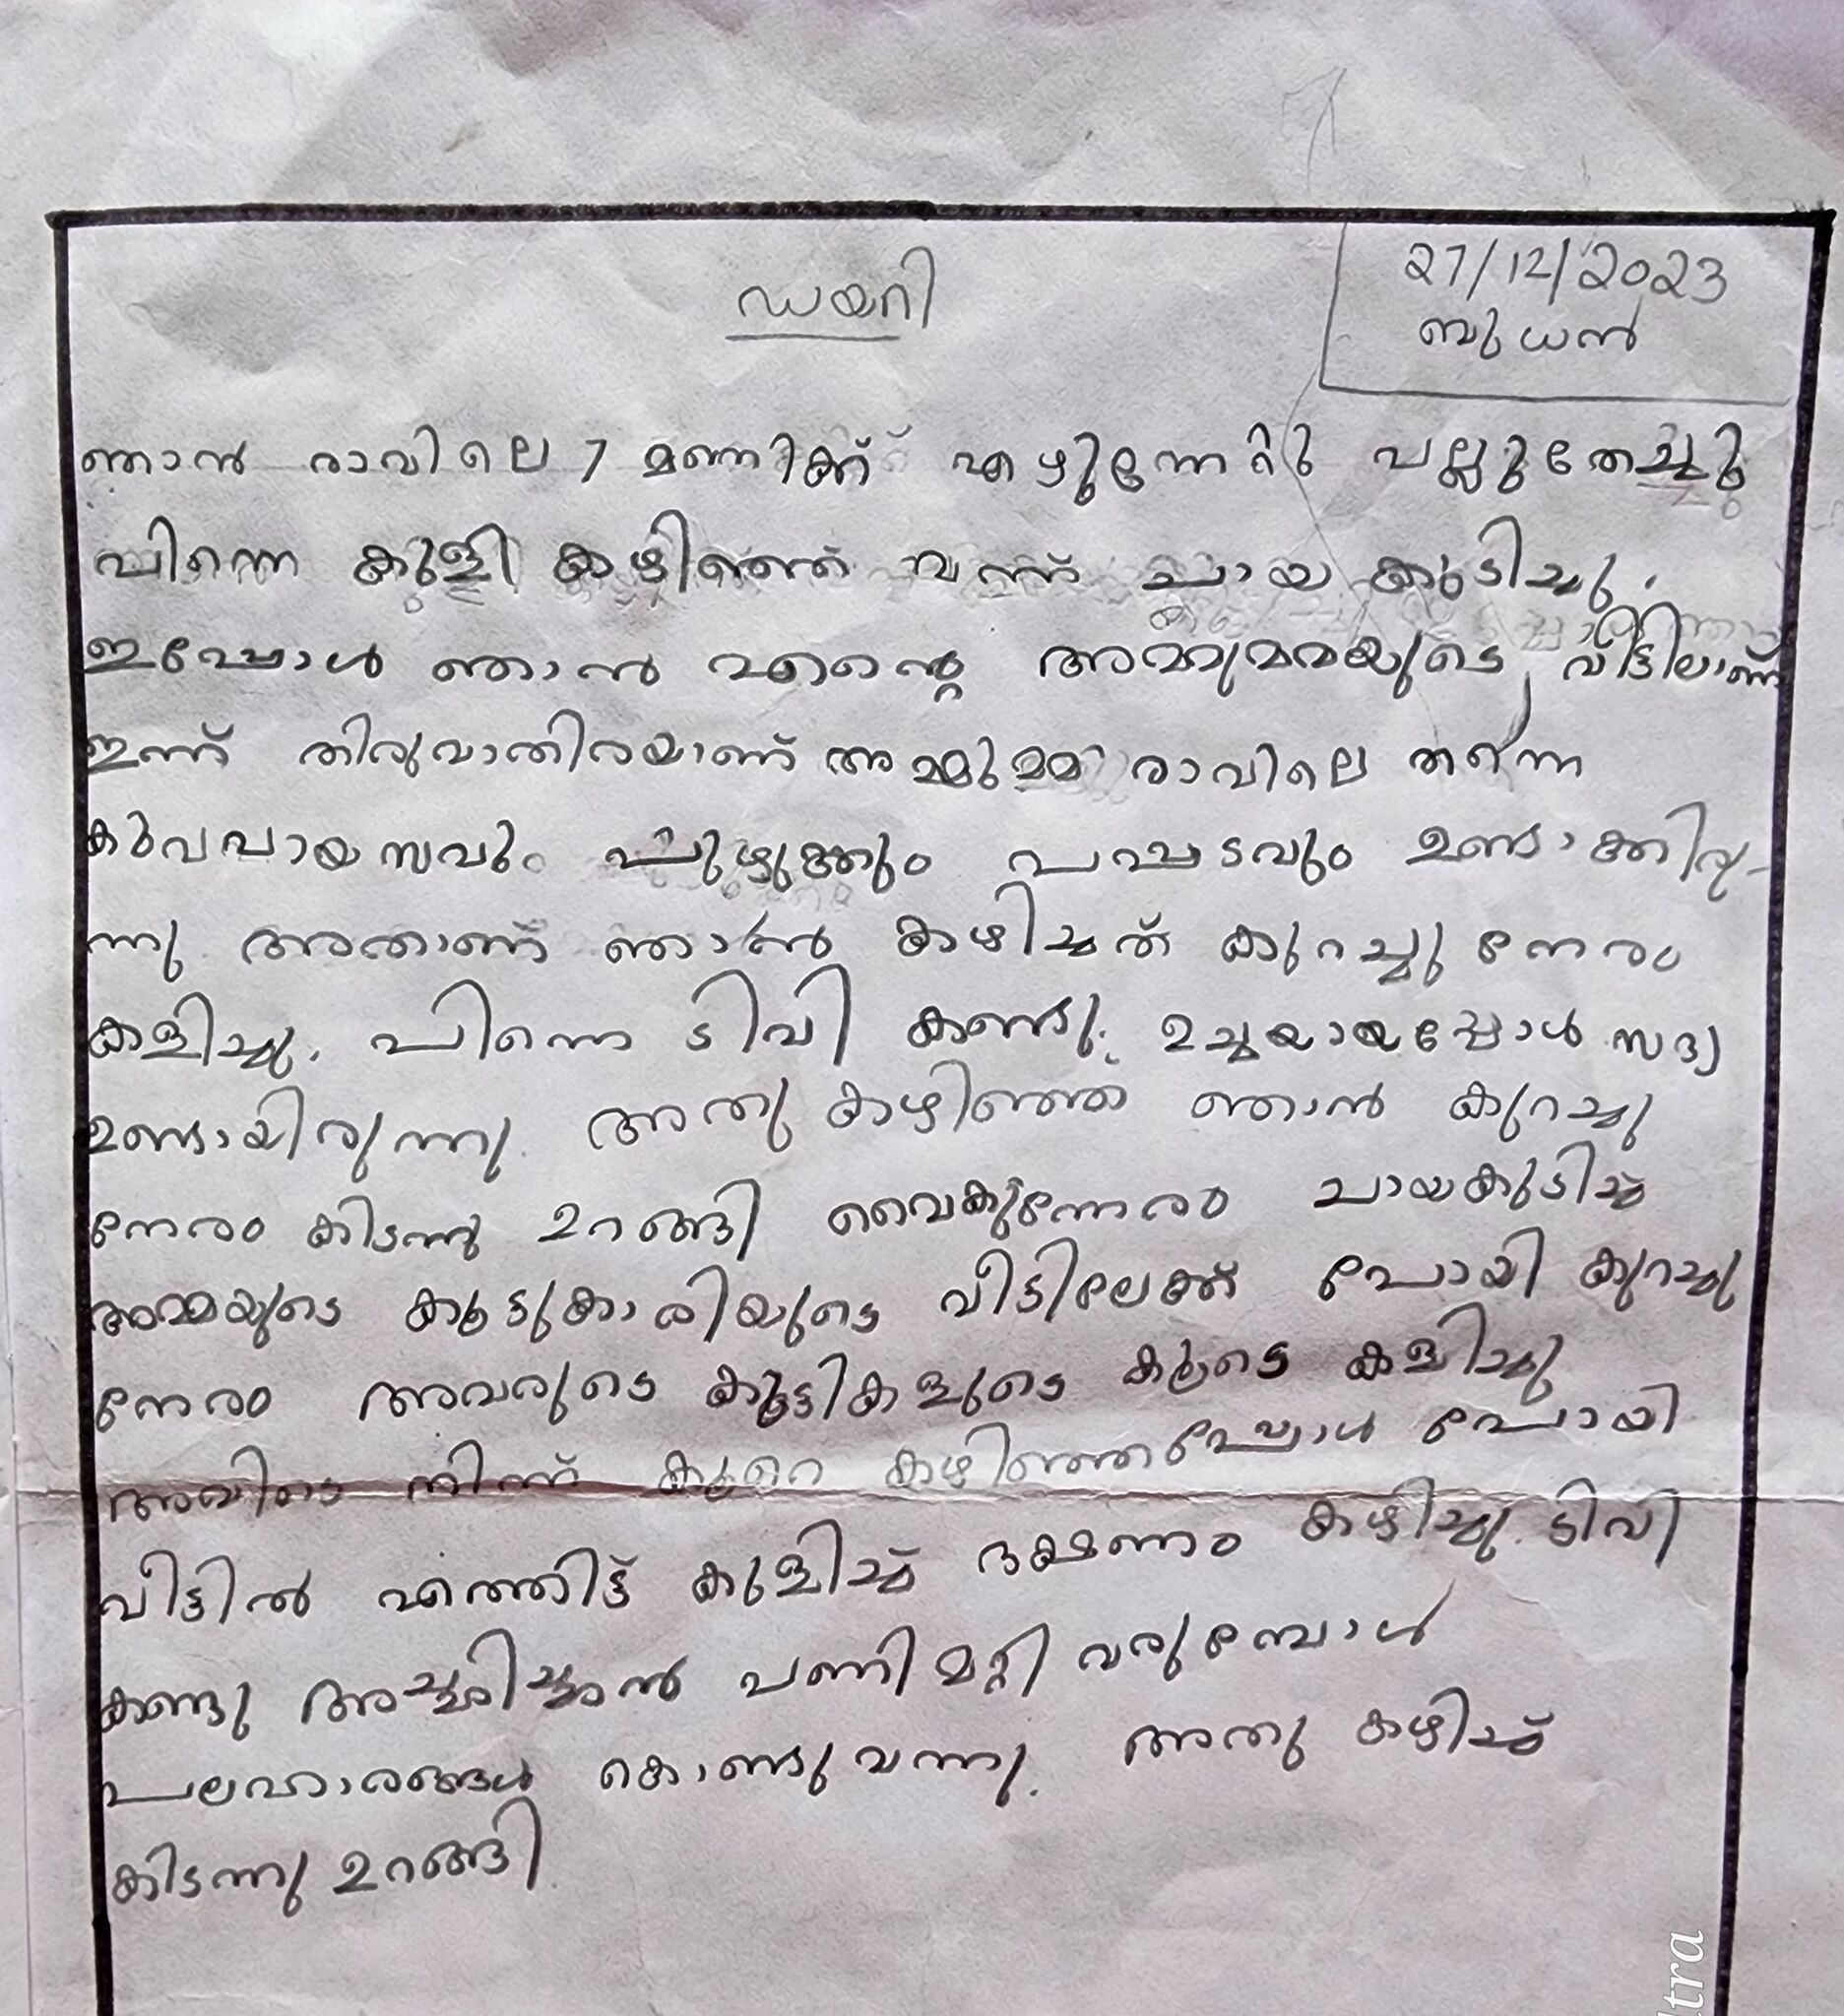 ഡയറി
27/12/2023
ബുധൻ
ഞാൻ രാവിലെ 7 മണിക്ക് എഴുന്നേറ്റു പല്ലുതേച്ചു
പിന്നെ കുളി കഴിഞ്ഞ് വന്ന് ചായ കുടിച്ചു.
ഇപ്പോൾ ഞാൻ എന്റെ അമ്മുമ്മയുടെ വീട്ടിലാണ്
ഇന്ന് തിരുവാതിരയാണ് അമ്മുമ്മ രാവിലെ തന്നെ
കുവപായസവും പുഴുക്കും പപ്പടവും ഉണ്ടാക്കിരു-
ന്നു അതാണ് ഞാൻ കഴിച്ചത് കുറച്ചു നേരം
കളിച്ചു. പിന്നെ ടിവി കണ്ടു. ഉച്ചയായപ്പോൾ സദ്യ
ഉണ്ടായിരുന്നു. അതു കഴിഞ്ഞ് ഞാൻ കുറച്ചു
നേരം കിടന്നു ഉറങ്ങി വൈകുന്നേരം ചായകുടിച്ച്
അമ്മയുടെ കൂട്ടുകാരിയുടെ വീട്ടിലേക്ക് പോയി കുറച്ചു
നേരം അവരുടെ കുട്ടികളുടെ കൂടെ കളിച്ചു
അവിടെ നിന്ന് കുറെ കഴിഞ്ഞപ്പോൾ പോയി
വീട്ടിൽ എത്തിട്ട് കുളിച്ച് ഭക്ഷണം കഴിച്ചു. ടിവി
കണ്ടു പണി മാറ്റി വരുമ്പോൾ
പലഹാരങ്ങൾ കൊണ്ടുവന്നു. അതു കഴിച്ച്
കിടന്നു ഉറങ്ങി.
tra